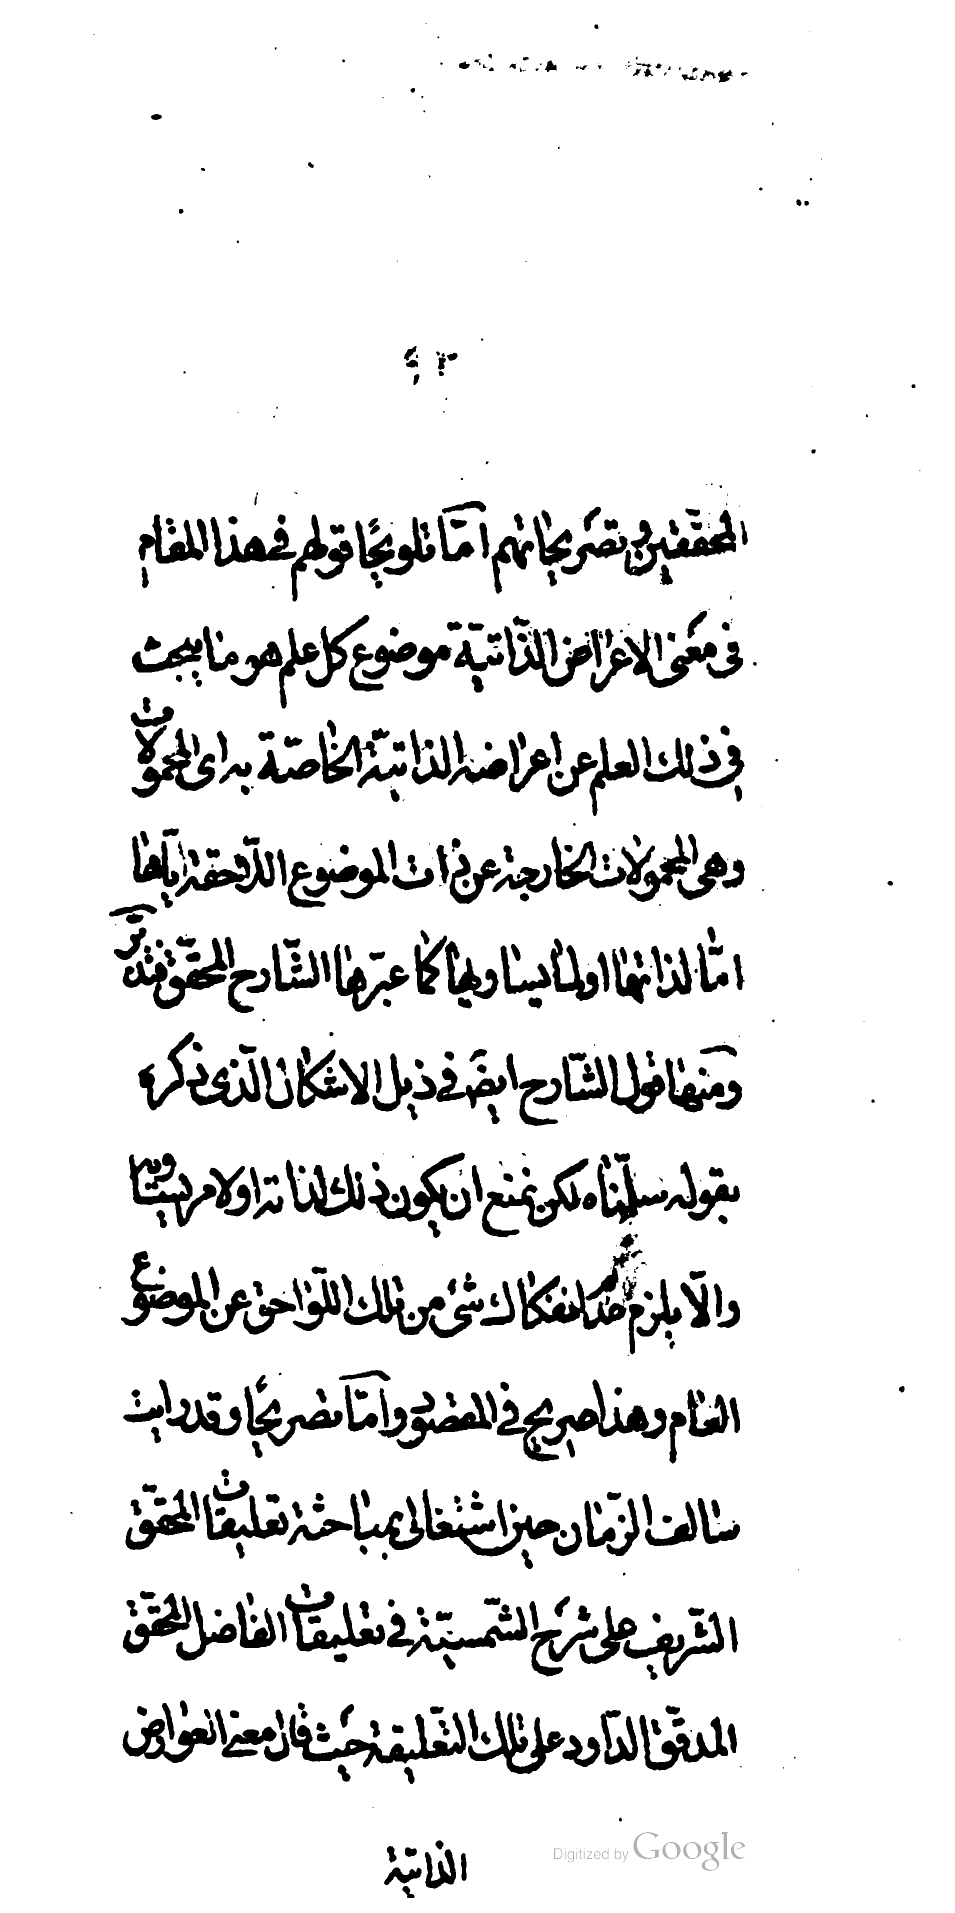 المحققين وتصريحاتهم اما تلويحا قولهم في هذا المقام
في معنى الاعراض الذاتية موضوع كل علم هو ما يبحث
في ذلك العلم عن اعراضه الذاتية الخاصة به اى المحمولات
وهى المحمولات الخارجة عن ذات الموضوع اللاحقة اياها
امّا لذاتها او لما يساويها كما عبّر ها الشّارح المحقّق فتدبّر
ومنها قول الشّارح ايضًا في ذيل الاشكال الّذى ذكره
بقوله سلّمناه لكن نمنع ان يكون ذلك لذاته او لامر يساويه
والّا يلزم انفكاك شئ من تلك اللّواحق عن الموضوع
العام وهذا صريح في المقصود وامّا تصريحًا وقد رايت
سالف الزّمان حين اشتغالى بمباحثة تعليقات المحقّق
الشّريف على شرح الشّمسيّة في تعليقات الفاضل المحقّق
المدقّق الدّاود على تلك التّعليقة حيث قال معنى العوارض
الذاتية
Digitized by Google